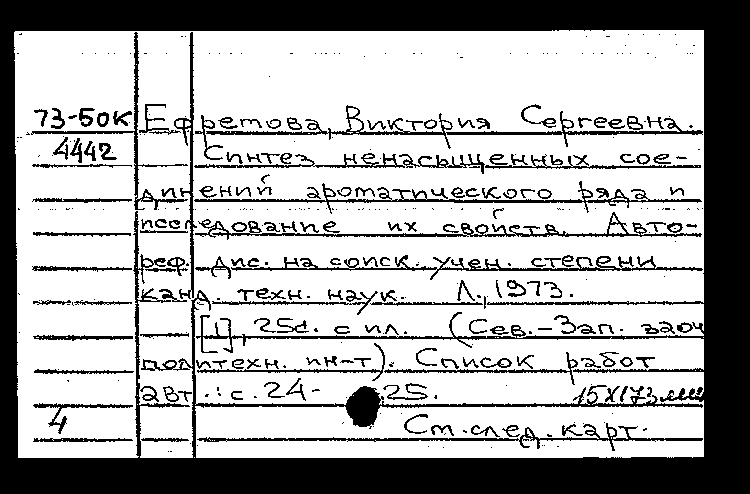 73-50К Ефремова, Виктория Сергеевна.
4442 Синтез ненасыщенных сое-
динений ароматического ряда и
исследование их свойств. Авто-
реф. дис. на соиск. учен. степени
канд. техн. наук. Л., 1973.
[1], 25с. с ил. (Сев.-Зап. заоч
политехн. ин-т). Список работ
авт.: с. 24-25.
4 См. след. карт.